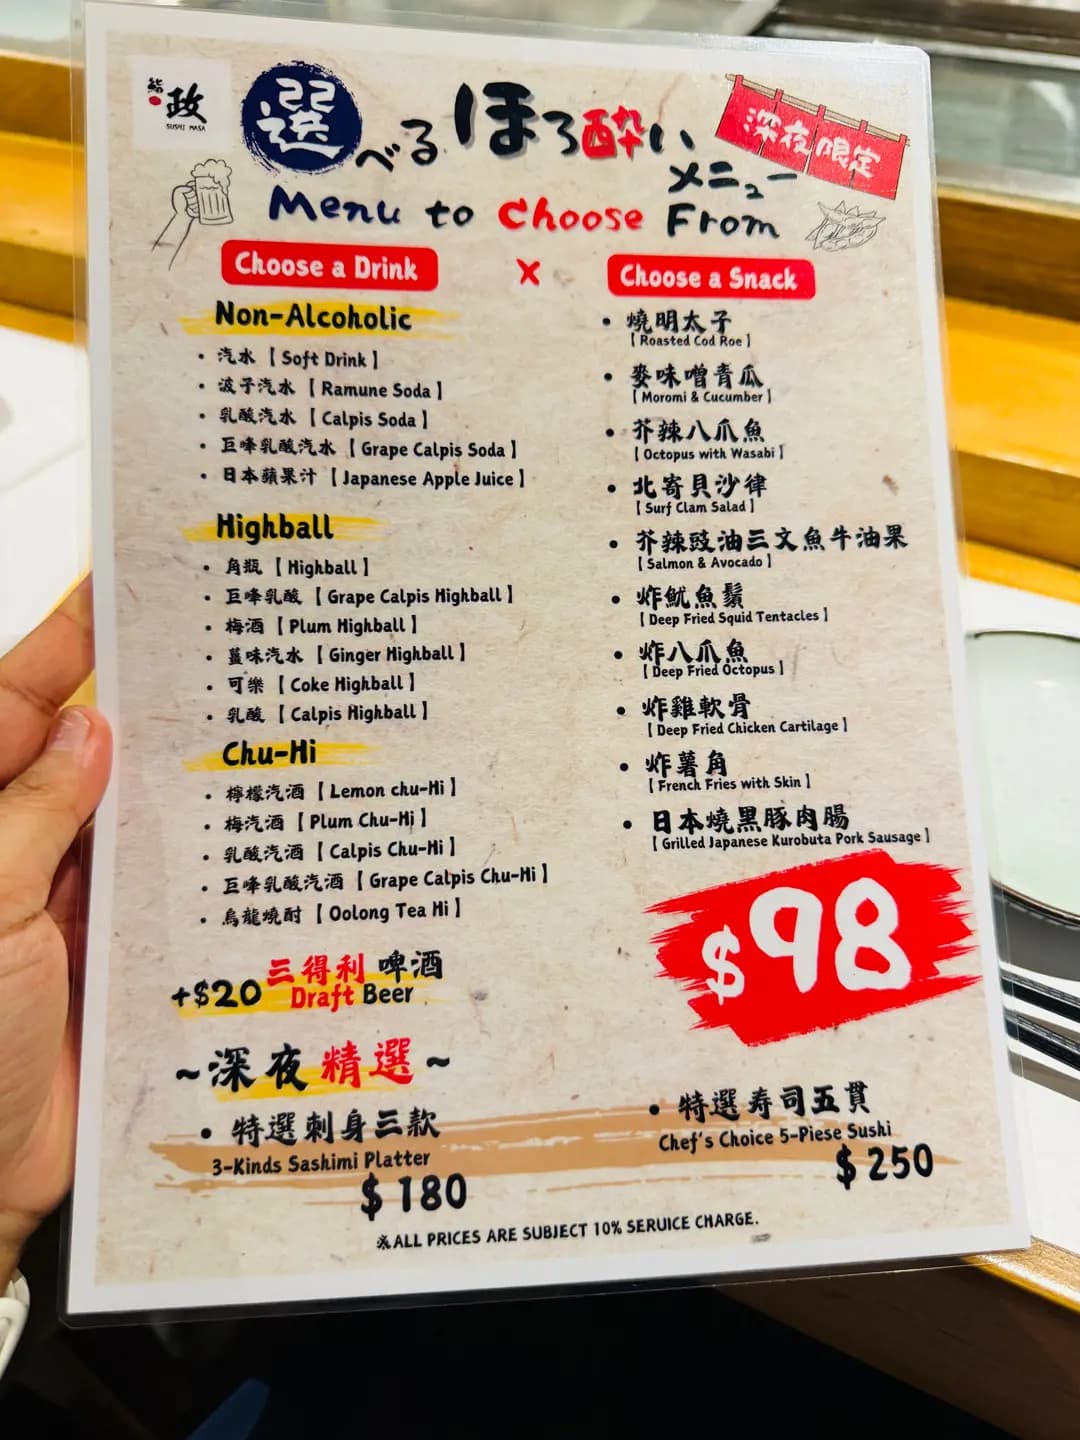 鮨 政
SUSHI MASA
選べるほろ酔い
メニュー
深夜限定
Menu to Choose From
Choose a Drink
X
Choose a Snack
Non-Alcoholic
• 汽水【Soft Drink】
• 波子汽水【Ramune Soda】
• 乳酸汽水【Calpis Soda】
• 巨峰乳酸汽水【Grape Calpis Soda】
• 日本蘋果汁【Japanese Apple Juice】
Highball
• 角瓶【Highball】
• 巨峰乳酸【Grape Calpis Highball】
• 梅酒【Plum Highball】
• 薑味汽水【Ginger Highball】
• 可樂【Coke Highball】
• 乳酸【Calpis Highball】
Chu-Hi
• 檸檬汽酒【Lemon chu-Hi】
• 梅汽酒【Plum Chu-Hi】
• 乳酸汽酒【Calpis Chu-Hi】
• 巨峰乳酸汽酒【Grape Calpis Chu-Hi】
• 烏龍燒酎【Oolong Tea Hi】
+$20 三得利 啤酒
Draft Beer
• 燒明太子
【Roasted Cod Roe】
• 麥味噌青瓜
【Moromi & Cucumber】
• 芥辣八爪魚
【Octopus with Wasabi】
• 北寄貝沙律
【Surf Clam Salad】
• 芥辣豉油三文魚牛油果
【Salmon & Avocado】
• 炸魷魚鬚
【Deep Fried Squid Tentacles】
• 炸八爪魚
【Deep Fried Octopus】
• 炸雞軟骨
【Deep Fried Chicken Cartilage】
• 炸薯角
【French Fries with Skin】
• 日本燒黑豚肉腸
【Grilled Japanese Kurobuta Pork Sausage】
$98
~深夜精選~
• 特選刺身三款
3-Kinds Sashimi Platter
$180
• 特選寿司五貫
Chef's Choice 5-Piese Sushi
$250
※ALL PRICES ARE SUBJECT 10% SERUICE CHARGE.